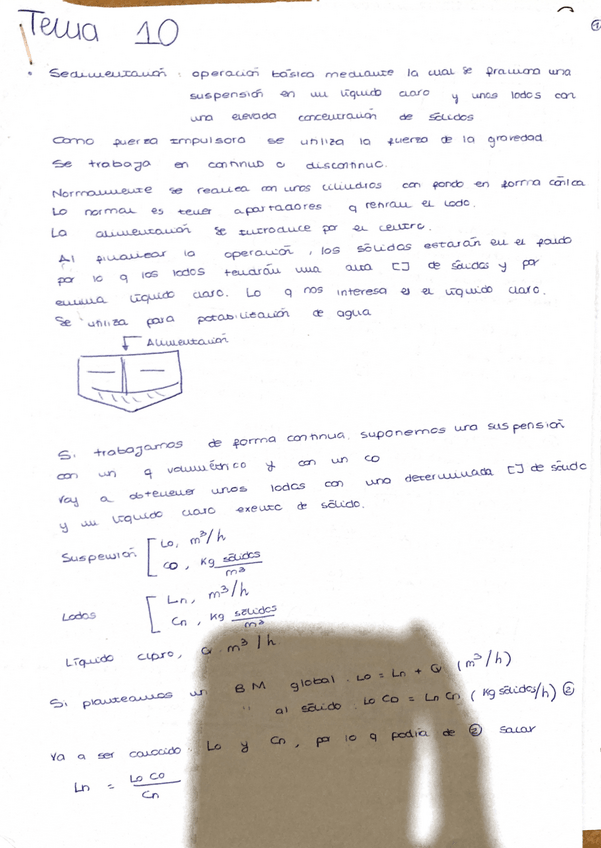 Tema 10
①
• Sedimentación : operación básica mediante la cual se fracciona una
suspensión en un líquido claro y unos lodos con
una elevada concentración de sólidos
Como fuerza impulsora se utiliza la fuerza de la gravedad.
Se trabaja en continuo o discontinuo.
Normalmente se realiza con unos cilindros con fondo en forma cónica
Lo normal es tener apartadores q retiran el lodo.
La alimentación se introduce por el centro.
Al finalizar la operación, los sólidos estarán en el fondo
por lo q los lodos tendrán una alta [] de sólidos y por
encima líquido claro. Lo q nos interesa es el líquido claro.
Se utiliza para potabilización de agua
Alimentación
Si trabajamos de forma continua. suponemos una suspensión
con un q volumétrico y con un co
Voy a obtener unos lodos con una determinada [] de sólido
y un líquido claro exento de sólido.
Suspensión [ Lo, m³/h
co, Kg sólidos / m³
Lodos [ Ln, m³/h
Cn, Kg sólidos / m³
Líquido claro, Q m³/h.
Si planteamos un BM global. Lo = Ln + Q (m³/h)
" al sólido. Lo Co = Ln Cn (Kg sólidos/h) ②
Va a ser conocido: Lo y Cn, por lo q podría de ② sacar
Ln = Lo Co / Cn